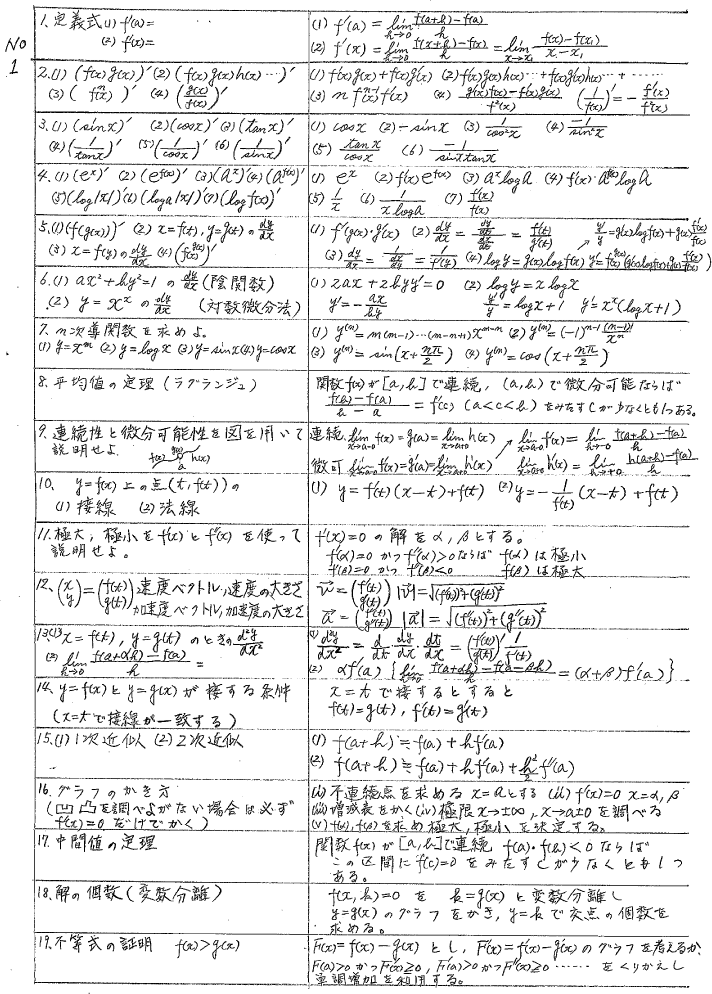 No 1
1. 定義式 (1) f'(a)=
(2) f'(x)=
(1) f'(a) = lim h→0 f(a+h)-f(a)/h
(2) f'(x) = lim h→0 f(x+h)-f(x)/h = lim x→x₁ f(x)-f(x₁)/x-x₁
2. (1) (f(x)g(x))' (2) (f(x)g(x)h(x)…)'
(3) (fⁿ(x))' (4) (g(x)/f(x))'
(1) f'(x)g(x)+f(x)g'(x) (2) f'(x)g(x)h(x)…+f(x)g'(x)h(x)…+……
(3) n fⁿ⁻¹(x) f'(x) (4) g'(x)f(x)-f'(x)g(x)/f²(x) (1/f(x))' = -f'(x)/f²(x)
3. (1) (sinx)' (2) (cosx)' (3) (tanx)'
(4) (1/tanx)' (5) (1/cosx)' (6) (1/sinx)'
(1) cosx (2) -sinx (3) 1/cos²x (4) -1/sin²x
(5) tanx/cosx (6) -1/sinxtanx
4. (1) (eˣ)' (2) (e^f(x))' (3) (aˣ)' (4) (a^f(x))'
(5) (log|x|)' (6) (logₐ|x|)' (7) (logf(x))'
(1) eˣ (2) f'(x)e^f(x) (3) aˣloga (4) f'(x)·a^f(x)loga
(5) 1/x (6) 1/xloga (7) f'(x)/f(x)
5. (1) (f(g(x)))' (2) x=f(t), y=g(t) の dy/dx
(3) x=f(y) の dy/dx (4) (f(x)^g(x))'
(1) f'(g(x))·g'(x) (2) dy/dx = dy/dt/dx/dt = g'(t)/f'(t) y'/y = g'(x)logf(x)+g(x)f'(x)/f(x)
(3) dy/dx = 1/dx/dy = 1/f'(y) (4) logy=g(x)logf(x) y'=f(x)^g(x)(g'(x)logf(x)+g(x)f'(x)/f(x))
6. (1) ax²+by²=1 の dy/dx (陰関数)
(2) y=xˣ の dy/dx (対数微分法)
(1) 2ax+2byy'=0 (2) logy=xlogx
y'=-ax/by y'/y=logx+1 y'=xˣ(logx+1)
7. n次導関数を求めよ。
(1) y=xᵐ (2) y=logx (3) y=sinx (4) y=cosx
(1) y⁽ⁿ⁾=m(m-1)…(m-n+1)xᵐ⁻ⁿ (2) y⁽ⁿ⁾=(-1)ⁿ⁻¹(n-1)!/xⁿ
(3) y⁽ⁿ⁾=sin(x+nπ/2) (4) y⁽ⁿ⁾=cos(x+nπ/2)
8. 平均値の定理 (ラグランジュ)
関数f(x)が[a,b]で連続, (a,b)で微分可能ならば
f(b)-f(a)/b-a = f'(c) (a<c<b) をみたすCが少なくとも1つある。
9. 連続性と微分可能性を図を用いて
説明せよ. f(x) g(a) h(x) a
連続 lim x→a-0 f(x)=g(a)=lim x→a+0 h(x) lim x→a-0 f'(x)=lim h→-0 f(a+h)-f(a)/h
微可 lim x→a-0 f'(x)=g'(a)=lim x→a+0 h'(x) lim x→a+0 h'(x)=lim h→+0 h(a+h)-f(a)/h
10. y=f(x)上の点(t,f(t))の
(1) 接線 (2) 法線
(1) y=f'(t)(x-t)+f(t) (2) y=-1/f'(t)(x-t)+f(t)
11. 極大, 極小をf'(x)とf''(x)を使って
説明せよ。
f'(x)=0の解をα,βとする。
f'(α)=0 かつ f''(α)>0ならば f(α)は極小
f'(β)=0 かつ f''(β)<0 f(β)は極大
12. (x y)=(f(t) g(t)) 速度ベクトル, 速度の大きさ
加速度ベクトル, 加速度の大きさ
v=(f'(t) g'(t)) |v|=√(f'(t))²+(g'(t))²
a=(f''(t) g''(t)) |a|=√(f''(t))²+(g''(t))²
13. (1) x=f(t), y=g(t)のときの d²y/dx²
(2) lim h→0 f(a+αh)-f(a)/h =
(1) d²y/dx² = d/dt·dy/dx·dt/dx = (g'(t)/f'(t))' 1/f'(t)
(2) αf'(a) {lim h→0 f(a+αh)-f(a-βh)/h=(α+β)f'(a)}
14. y=f(x)とy=g(x)が接する条件
(x=tで接線が一致する)
x=tで接するとすると
f(t)=g(t), f'(t)=g'(t)
15. (1) 1次近似 (2) 2次近似
(1) f(a+h)≒f(a)+hf'(a)
(2) f(a+h)≒f(a)+hf'(a)+h²/2 f''(a)
16. グラフのかき方
(凹凸を調べよがない場合は必ず
f'(x)=0だけでかく)
不連続点を求める x=aとする (ii) f'(x)=0 x=α,β
(iii) 増減表をかく (iv) 極限x→±∞, x→a±0を調べる
(v) f(α), f(β)を求め極大, 極小を決定する。
17. 中間値の定理
関数f(x)が[a,b]で連続 f(a)·f(b)<0ならば
この区間にf(c)=0をみたすCが少なくとも1つ
ある。
18. 解の個数(変数分離)
f(x,k)=0 を k=g(x)と変数分離し
y=g(x)のグラフをかき, y=kで交点の個数を
求める。
19. 不等式の証明 f(x)>g(x)
F(x)=f(x)-g(x)とし, F'(x)=f'(x)-g'(x)のグラフを考えるか,
F(a)>0かつF'(x)≥0, F'(a)>0かつF''(x)≥0 …… をくりかえし
単調増加を利用する。